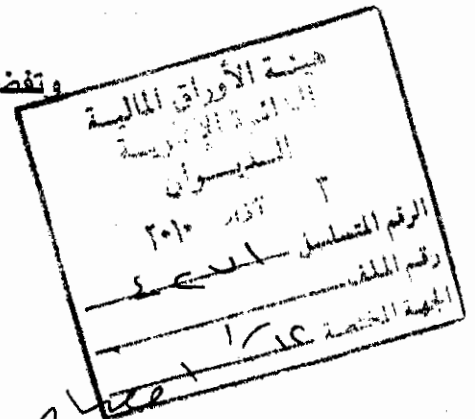 وتفض
هيئة الأوراق المالية
الدائرة الإدارية
الديوان
٣ آذار ٢٠١٠
الرقم المتسلسل
رقم الملف
الجهة المختصة